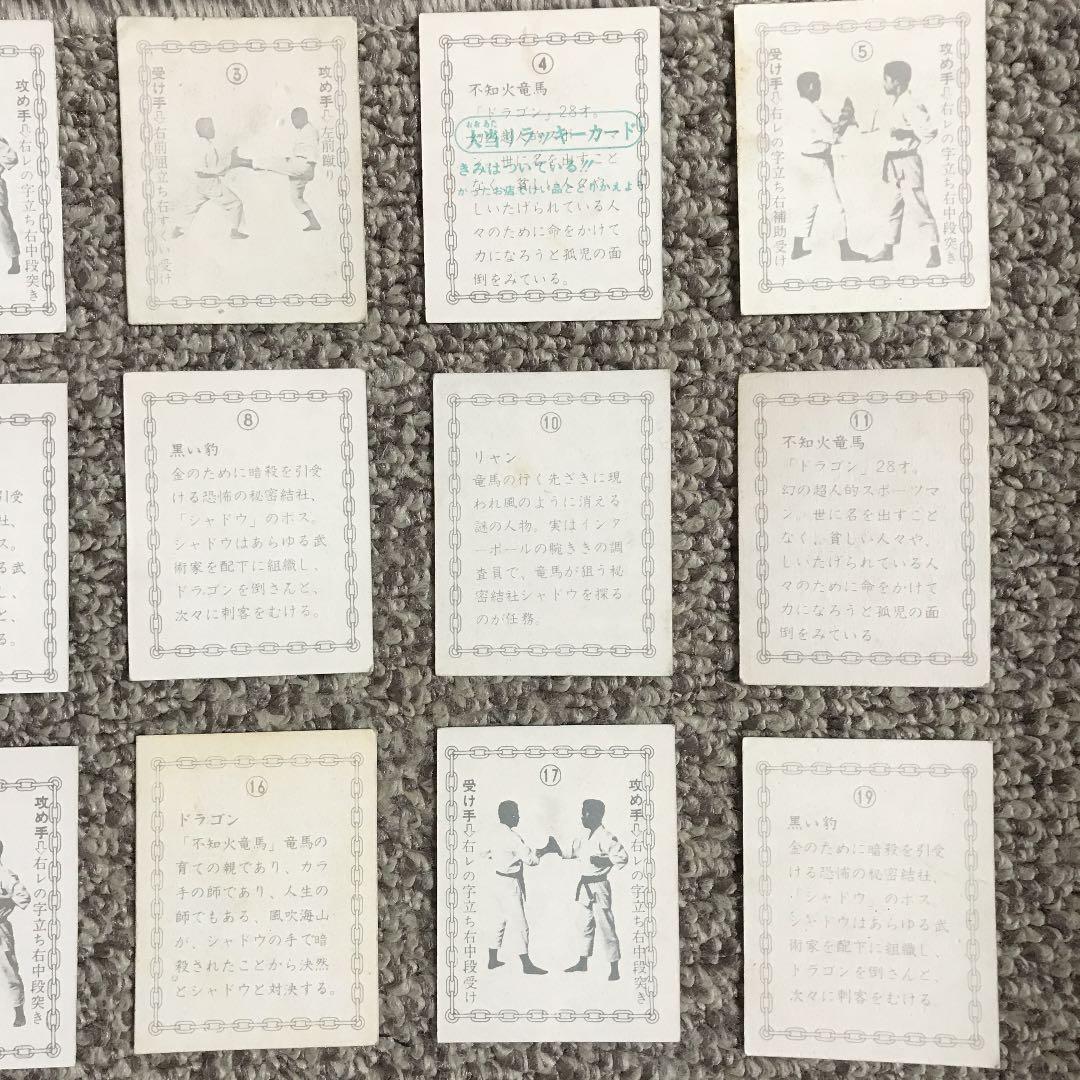 攻め手⇩右レの字立ち右中段突き
③
攻め手⇩左前蹴り
受け手⇩右前屈立ち右すくい受け
④
不知火竜馬
「ドラゴン」28才。
大当りラッキーカード
おおあた
きみはついている!!
かったお店でけい品ととりかえよう
世に名を出すこと
なく、貧しい人々や、
しいたげられている人
々のために命をかけて
力になろうと孤児の面
倒をみている。
⑤
攻め手⇩右レの字立ち右中段突き
受け手⇩右レの字立ち右補助受け
引受
社、
ス。
る武
し、
と、
る。
⑧
黒い豹
金のために暗殺を引受
ける恐怖の秘密結社、
「シャドウ」のボス。
シャドウはあらゆる武
術家を配下に組織し、
ドラゴンを倒さんと、
次々に刺客をむける。
⑩
リャン
竜馬の行く先ざきに現
われ風のように消える
謎の人物。実はインタ
ーポールの腕ききの調
査員で、竜馬が狙う秘
密結社シャドウを探る
のが任務。
⑪
不知火竜馬
「ドラゴン」28才。
幻の超人的スポーツマ
ン。世に名を出すこと
なく、貧しい人々や、
しいたげられている人
々のために命をかけて
力になろうと孤児の面
倒をみている。
攻め手⇩右レの字立ち右中段突き
⑯
ドラゴン
「不知火竜馬」竜馬の
育ての親であり、カラ
手の師であり、人生の
師でもある、風吹海山
が、シャドウの手で暗
殺されたことから決然
とシャドウと対決する。
⑰
攻め手⇩右レの字立ち右中段突き
受け手⇩右レの字立ち右中段受け
⑲
黒い豹
金のために暗殺を引受
ける恐怖の秘密結社、
「シャドウ」のボス。
シャドウはあらゆる武
術家を配下に組織し、
ドラゴンを倒さんと、
次々に刺客をむける。